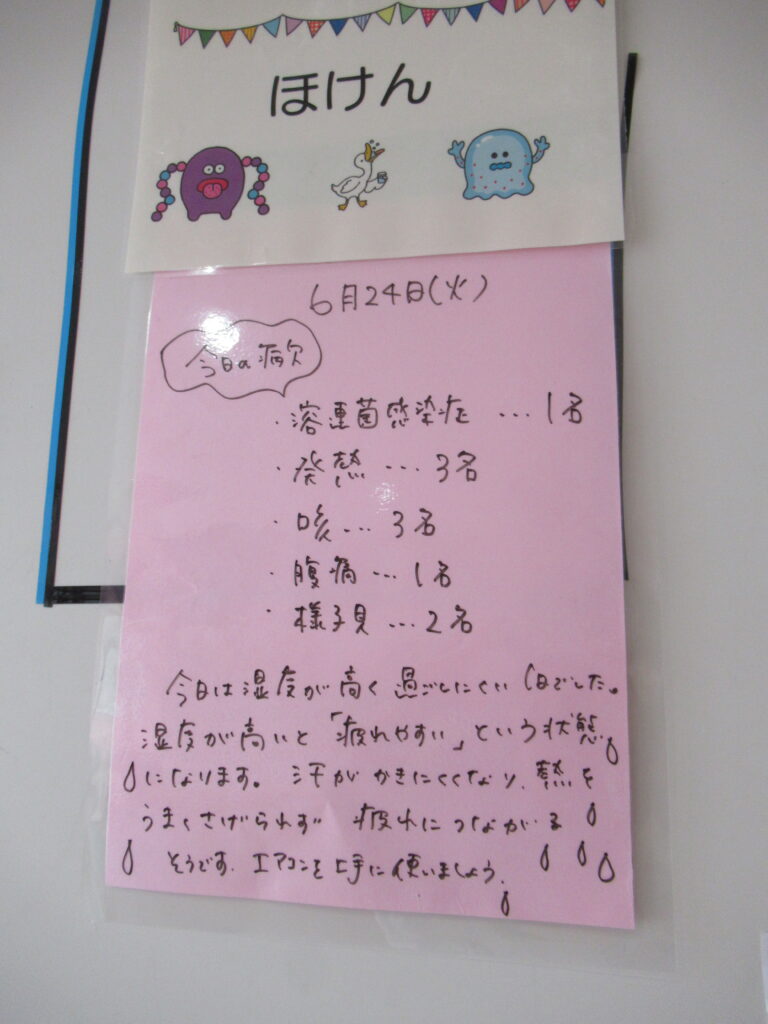 ほけん
6月24日(火)
今日の病欠
・溶連菌感染症 ... 1名
・発熱 ... 3名
・咳 ... 3名
・腹痛 ... 1名
・様子見 ... 2名
今日は湿度が高く過ごしにくい1日でした。
湿度が高いと「疲れやすい」という状態
になります。汗がかきにくくなり、熱を
うまくさげられず 疲れにつながる
そうです。エアコンを上手に使いましょう。